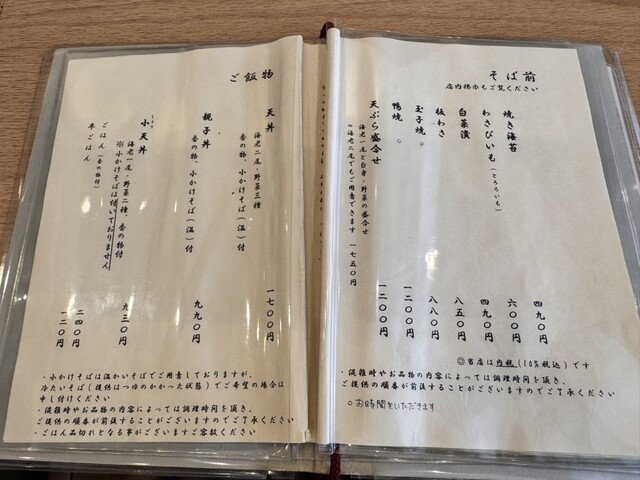 そば前
店内掲示もご覧ください
焼き海苔 四九〇円
わさびいも(とろろいも) 六〇〇円
白菜漬 四九〇円
板わさ 八五〇円
玉子焼。 八八〇円
鴨焼。 一二〇〇円
天ぷら盛合せ 一二〇〇円
海老一尾と白身・野菜の盛合せ
海老二尾でもご用意できます 一七五〇円
◎当店は内税(10%税込)です
・混雑時やお品物の内容によっては調理時間を頂き、
ご提供の順番が前後することがございますのでご了承ください
○お時間をいただきます
ご飯物
天丼 一七〇〇円
海老二尾・野菜三種
香の物、小かけそば(温)付
親子丼 九九〇円
香の物、小かけそば(温)付
小天丼 九三〇円
海老一尾・野菜二種、香の物付
※小かけそばは付いておりません
ごはん(香の物付) 二四〇円
半ごはん 一二〇円
・小かけそばは温かいそばでご用意しておりますが、
冷たいそば(提供はつゆのかかった状態)でご希望の場合は
申し付けください
・混雑時やお品物の内容によっては調理時間を頂き、
ご提供の順番が前後することがございますのでご了承ください
・ごはん品切れとなる事がございますご容赦ください